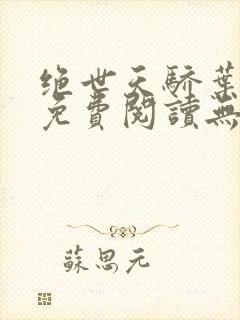 绝世天骄葉
免費閱讀無
蘇思元